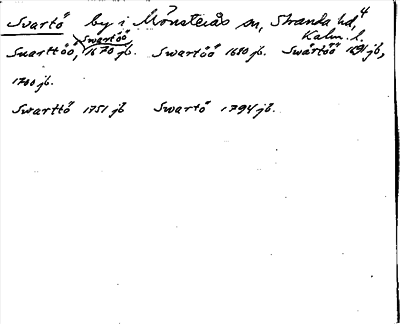 Svartö by i Mönsterås sn, Stranda hd, 4
Kalm. l.
Swartöö
Suarttöö, 1670 jb. Swartöö 1680 jb. Swårtöö 1691 jb,
1700 jb.
Swarttö 1751 jb Swartö 1794 jb.